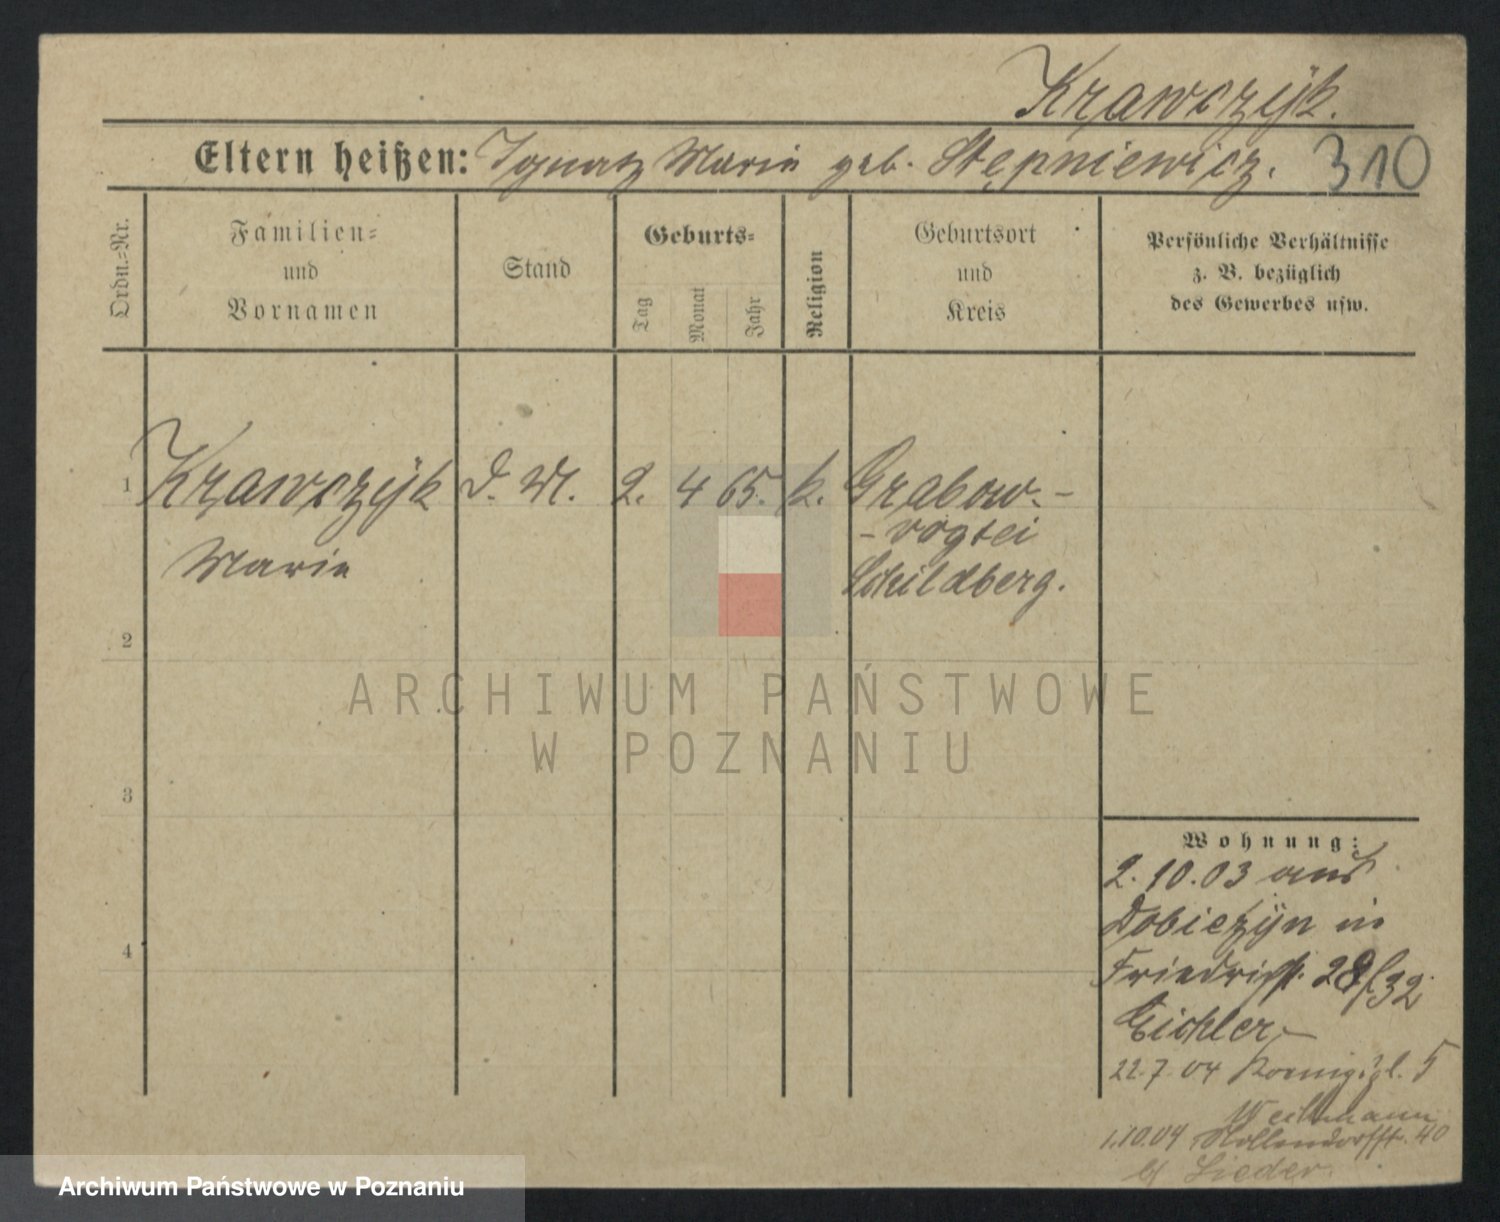 Krawczÿk.
Eltern heißen: Ignatz Marie geb. Stępniewicz. 310
Ordn.-Nr.
Familien-
und
Vornamen
Stand
Geburts-
Tag
Monat
Jahr
Religion
Geburtsort
und
Kreis
Persönliche Verhältnisse
z. B. bezüglich
des Gewerbes usw.
1 Krawczÿk D. M. 2. 4 65. k. Grabow-
- vogtei
Marie
Schildberg.
2
ARCHIWUM PAŃSTWOWE
W POZNANIU
3
Wohnung:
2. 10. 03 aus
Dobieżÿn in
Friedrichst. 28/32
4
Eichler
22. 7. 04 Koenigspl. 5
1.10.04 Nollendorfst. 40
b/ Lieder.
Archiwum Państwowe w Poznaniu